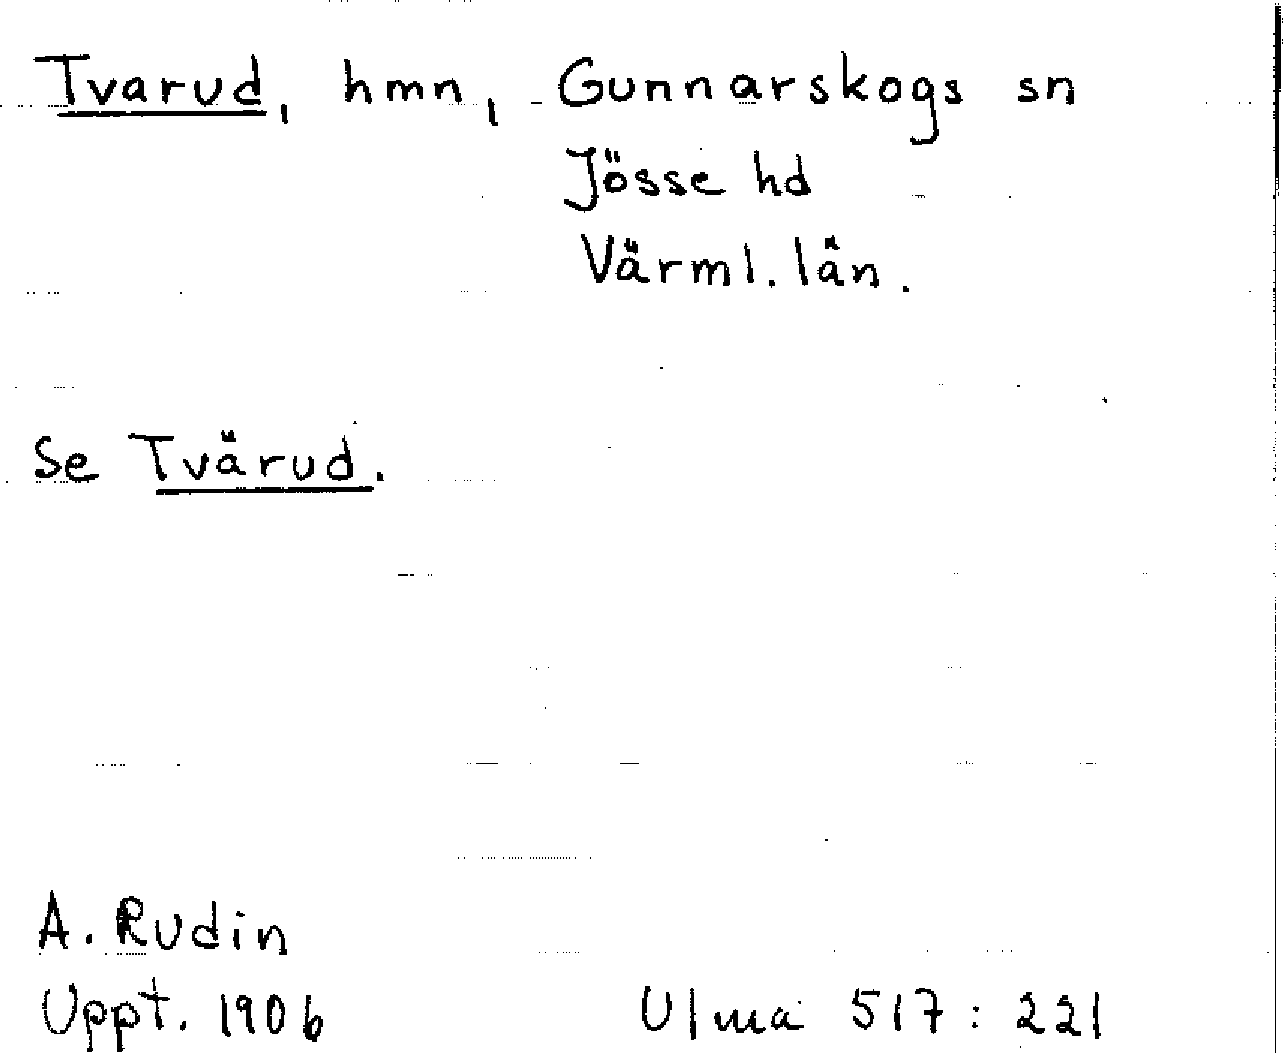 Tvarud, hmn, Gunnarskogs sn
Jösse hd
Värml. län.
Se Tvärud.
A. Rudin
Uppt. 1906
Ulma 517:221